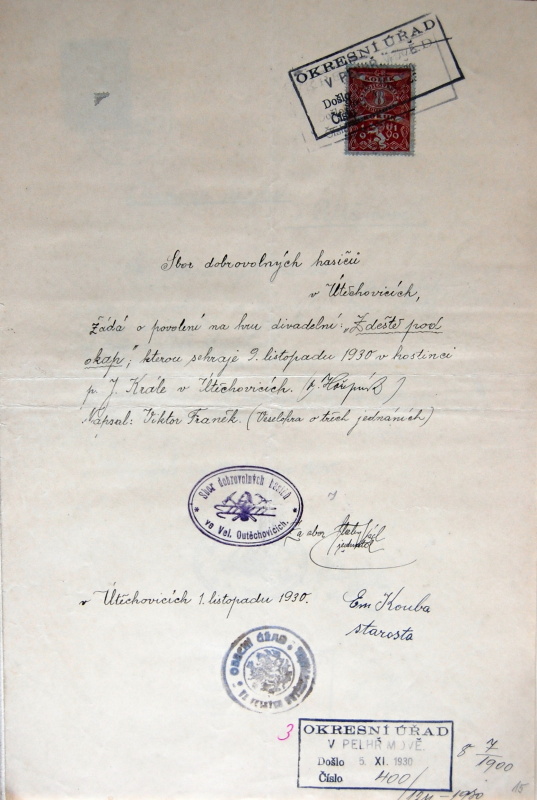 OKRESNÍ ÚŘAD
V PELHŘIMOVĚ
Došlo
Číslo
KOLEK
8
Sbor dobrovolných hasičů
v Útěchovicích,
Žádá o povolení na hru divadelní: „Z deště pod
okap", kterou sehraje 9. listopadu 1930 v hostinci
p. J. Krále v Útěchovicích. (
Napsal: Viktor Franěk. (Veselohra o třech jednáních)
Sbor dobrovolných hasičů
ve Vel. Outěchovicích.
Za sbor
jednatel
v Útěchovicích 1. listopadu 1930.
Em Kouba
starosta
OBECNÍ ÚŘAD
3
OKRESNÍ ÚŘAD
V PELHŘIMOVĚ.
Došlo 5. XI. 1930
Číslo 400/
8 7/1900
15